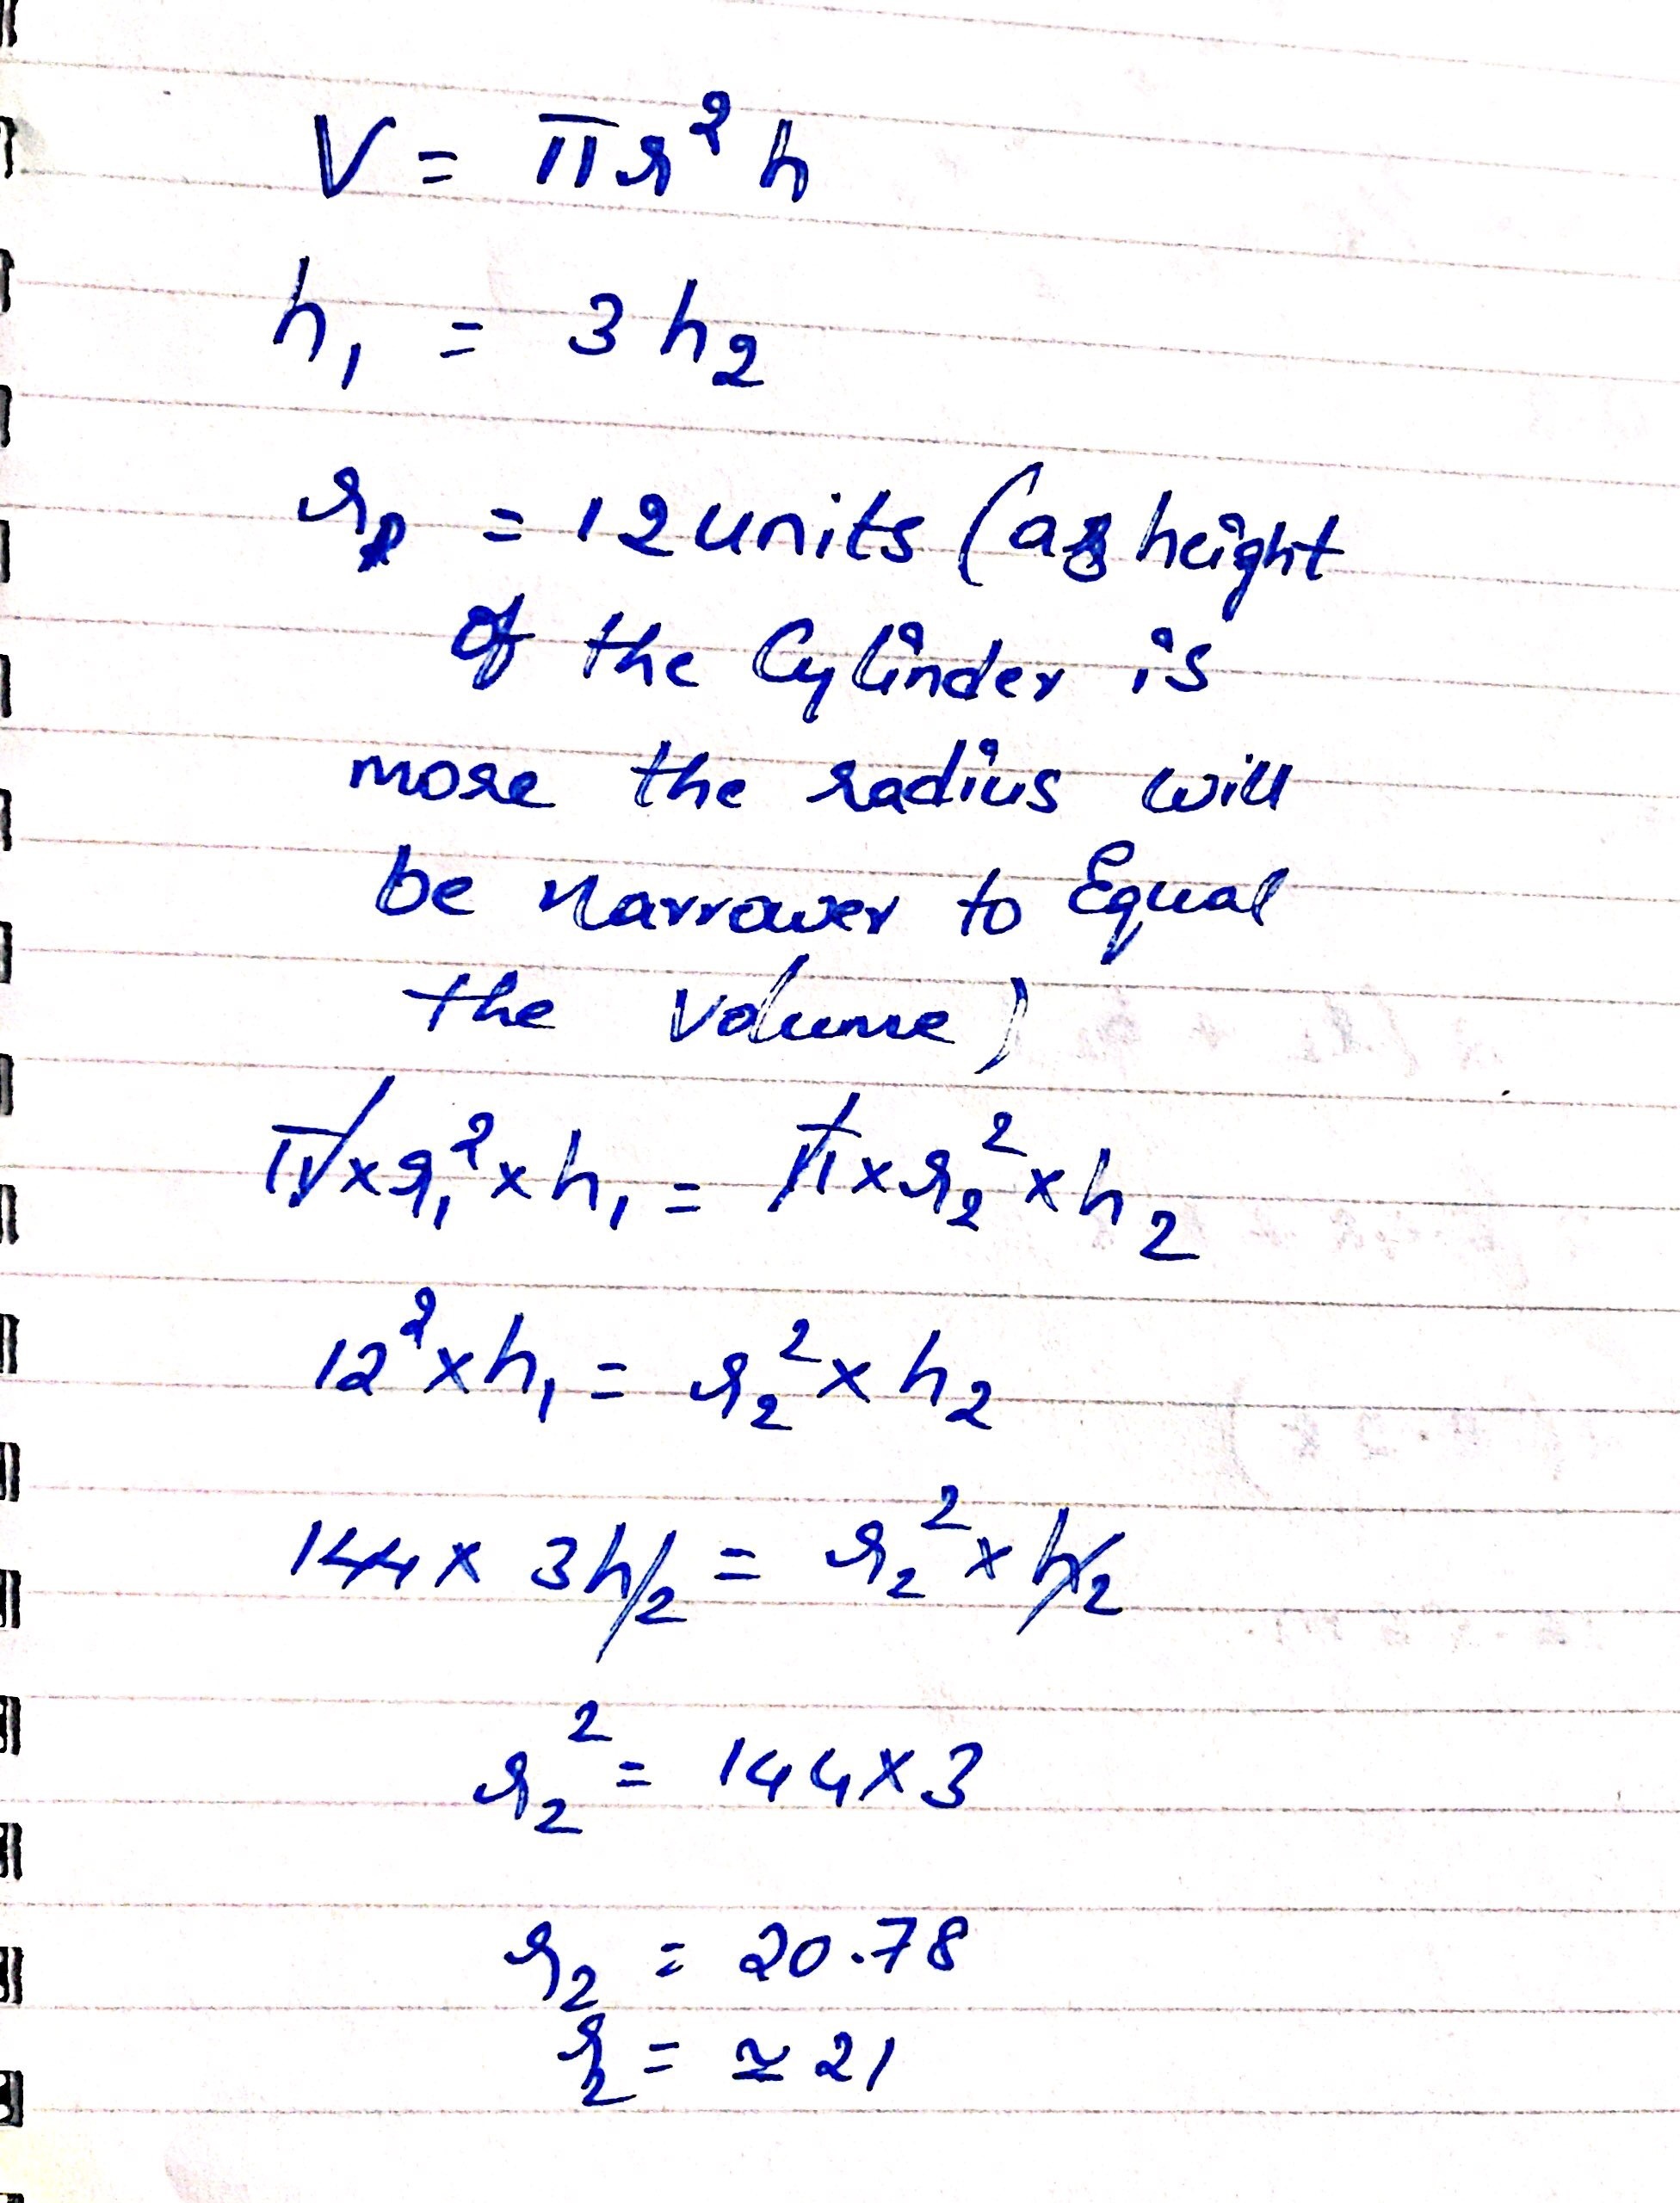 V = πr² h
h₁ = 3 h₂
r₁ = 12 units (as height
of the Cylinder is
more the radius will
be narrower to Equal
the Volume)
π × r₁² × h₁ = π × r₂² × h₂
12² × h₁ = r₂² × h₂
144 × 3h₂ = r₂² × h₂
r₂² = 144 × 3
r₂ = 20.78
r₂ = ≃ 21